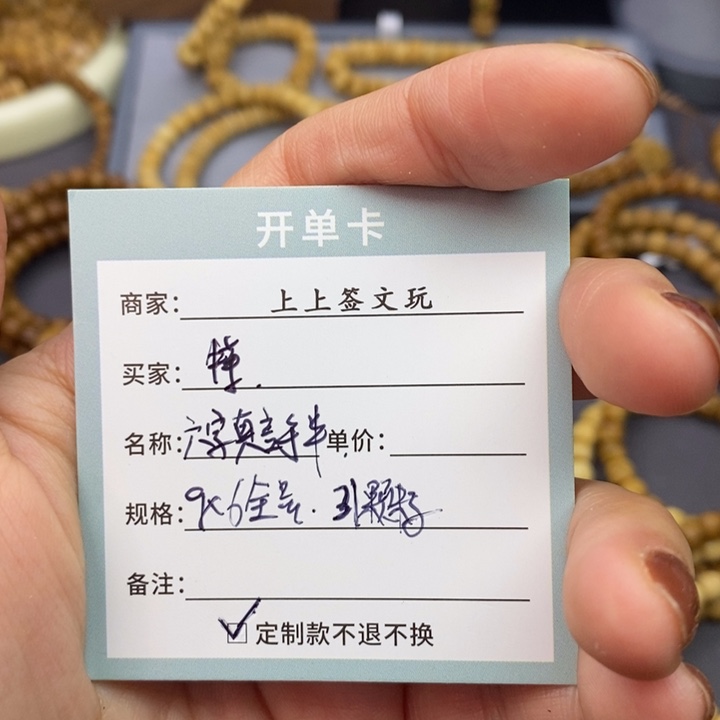 开单卡
商家: 上上签文玩
买家:
名称: 六字真言手串 单价:
规格: 9×6全号. 31颗
备注:
☑ 定制款不退不换